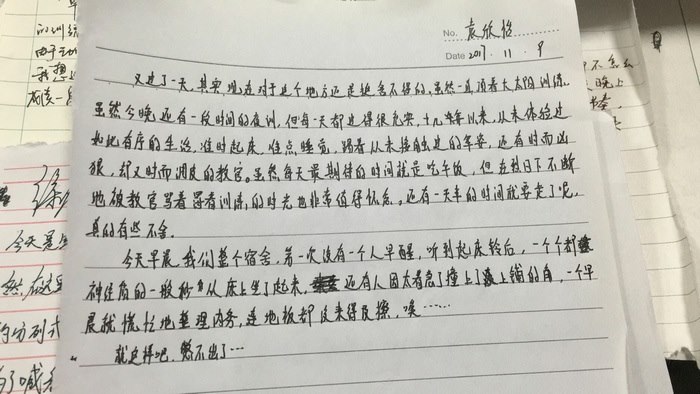 No. 袁欣怡
Date 2017.11.9
又过了一天,其实现在对于这个地方还是挺舍不得的,虽然一直顶着大太阳训练,
虽然今晚还有一段时间的夜训,但每一天都过得很充实,十几年年以来,从未体验过
如此有序的生活,准时起床,准点睡觉,踢着从未接触过的军姿,还有时而凶
狠,却又时而调皮的教官。虽然每天最期待的时间就是吃午饭,但在烈日下不断
地被教官骂着罚着训练的时光也非常值得怀念。还有一天半的时间就要走了呢,
真的有些不舍。
今天早晨,我们整个宿舍,第一次没有一个人早醒,听到起床铃后,一个个都
神经质的一般秒从床上坐了起来,还有人因太着急了撞上了上铺的角,一个早
晨就慌忙地整理内务,连地板都没来得及擦,唉……
就这样吧,憋不出了…
的训练
由于
我想
成该一
今天是
然,在这里
的分列式
的喊
不怎么
晚上